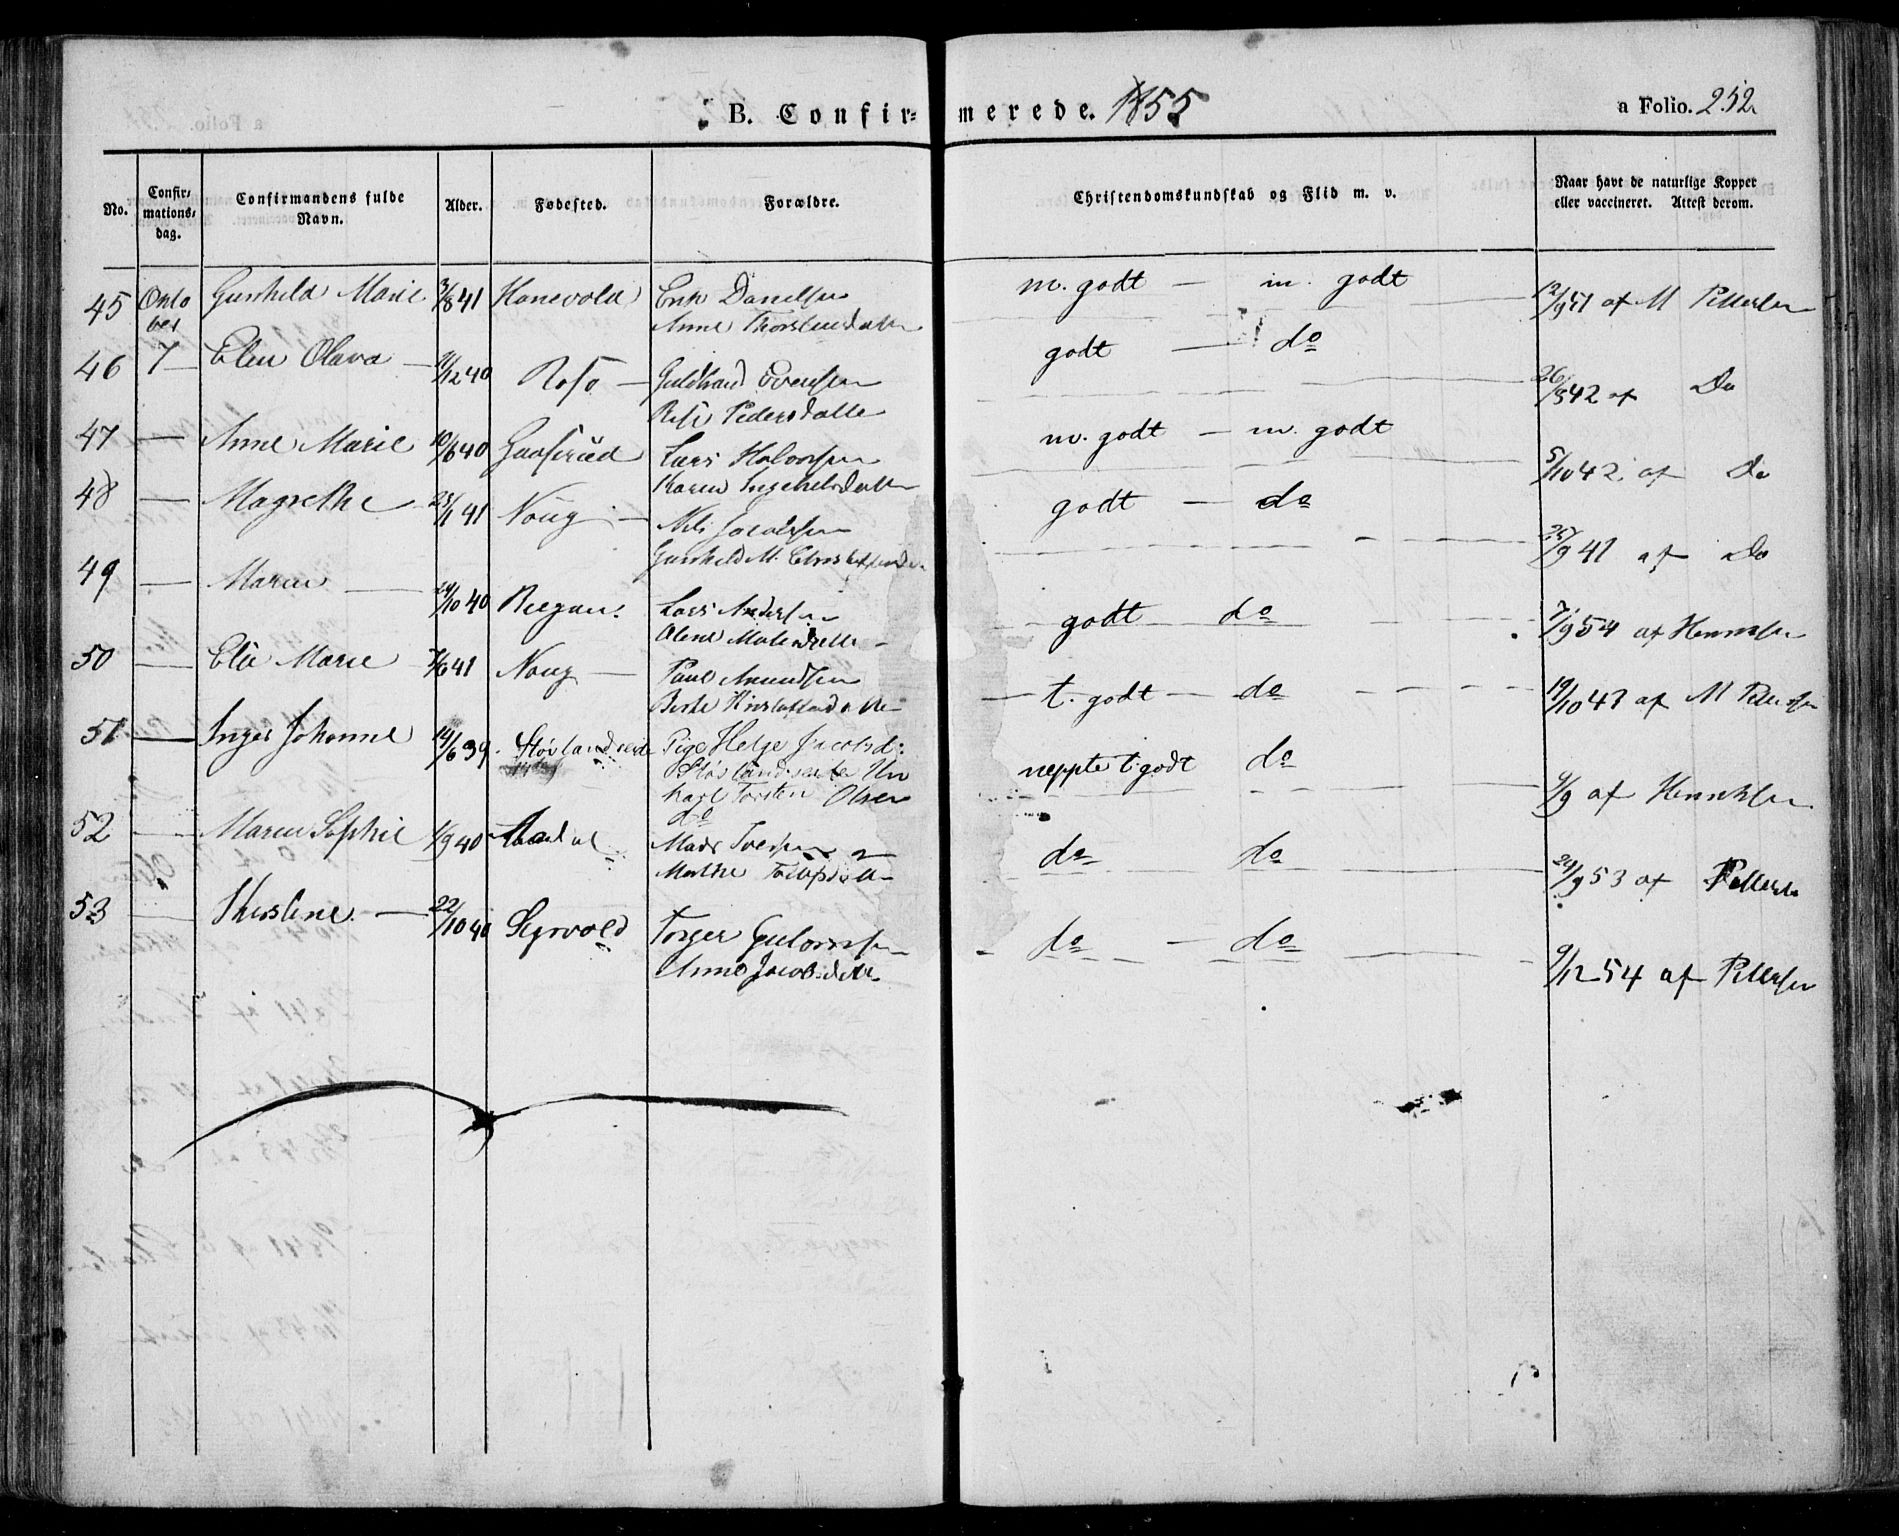 B. Confirmerede. 1855
a Folio. 252
No.
Confirmations-dag.
Confirmandens fulde Navn.
Alder.
Fødested.
Forældre.
Christendomskundskab og Flid m. v.
Naar havt de naturlige Kopper eller vaccineret. Attest derom.
45 Octo Gunhild Marie 3/8 41 Hanevold Erik Danielsen m. godt — m. godt 12/9 41 af M Pettersen
ber Anne Thorstensdatter
46 7 Elen Olava — 11/12 40 — Guldbrand Evensen godt — do 26/8 42 af Do
Pedersdatter
47 — Anne Marie 10/6 40 Gaaserud Lars Halvorsen m. godt — m. godt 5/10 42 af Do
Karen Ingebretsdatter
48 — Magrethe 23/1 41 Noug — Nils Jacobsen godt — do 25/9 41 af Do
Gunhild M.
49 — Maren — 10 40 Lars Andersen godt do 7/9 54 af Henriksen
Olene
50 — Elie Marie 7/6 41 Noug — Paul Amundsen t. godt — do 19/10 41 af M Pettersen
51 — Inger Johanne 14/6 39 Støvlandseie Pige Helge Jacobsd: neppe t. godt do 9 af Henriksen
Støvlandseie Un
karl Torsten Olsen
do
52 — Maren Sophie 1/9 40 Mads Iversen do do 29/9 53 af Pettersen
Marthe
53 — Kirstine — 22/10 40 Segrvold Torger Gulovsen do — do 9/12 54 af Pettersen
Anne Jacobsdatter